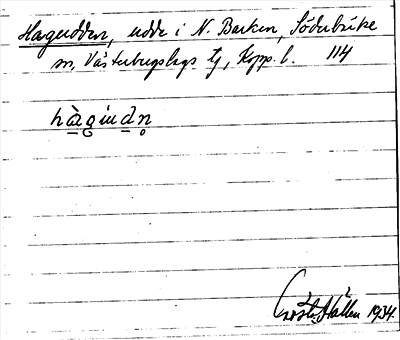 Hagudden, udde i N. Barken, Söderbärke
sn, Västerbergslags tg, Kopp. l. 114
hàgɯdn̥
Gösta Hallén 1934.